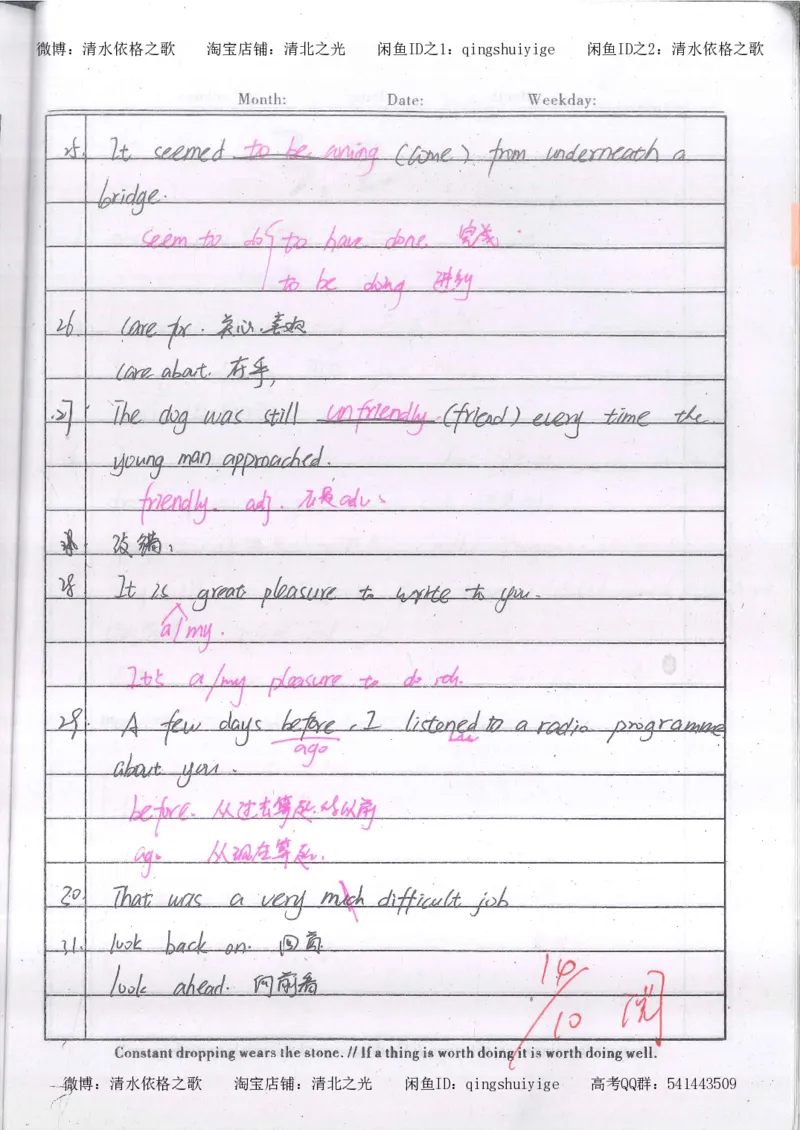 微博：清水依格之歌 淘宝店铺：清北之光 闲鱼ID之1：qingshuiyige 闲鱼ID之2：清水依格之歌
Month: Date: Weekday:
25. It seemed to be coming (come) from underneath a
bridge.
seem to do { to have done. 完成.
to be doing 进行
26. care for. 关心.喜欢
care about. 在乎,
27. The dog was still unfriendly. (friend) every time the
young man approached.
friendly. adj. 不是adv.
改错:
28 It is great pleasure to write to you.
a/my.
It's a/my pleasure to do sth.
29. A few days before, I listened to a radio programme
ago
about you.
before. 从过去算起.的以前
ago 从现在算起.
30. That was a very much difficult job
31. look back on. 回首
look ahead. 向前看
10
阅
Constant dropping wears the stone. // If a thing is worth doing it is worth doing well.
微博：清水依格之歌 淘宝店铺：清北之光 闲鱼ID：qingshuiyige 高考QQ群：541443509